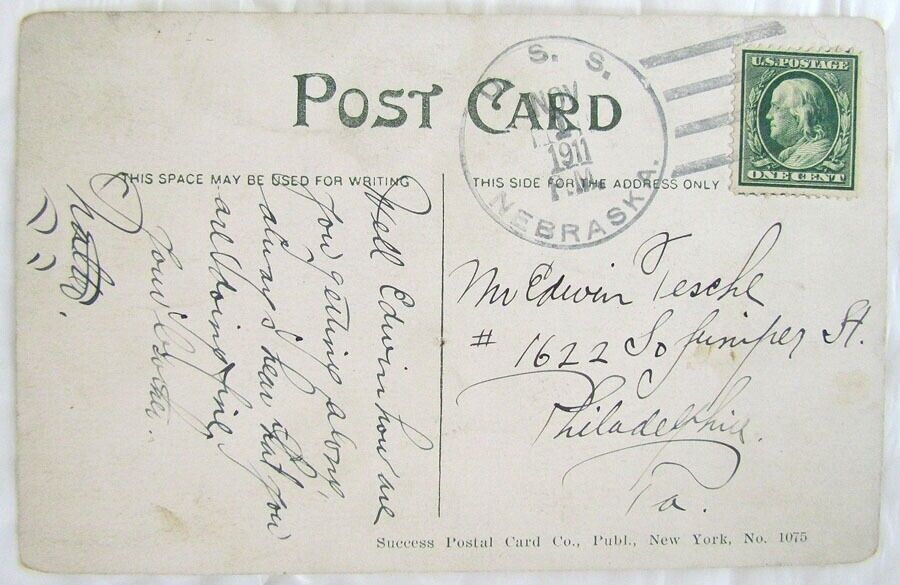 POST CARD
THIS SPACE MAY BE USED FOR WRITING
THIS SIDE FOR THE ADDRESS ONLY
U.S. POSTAGE
ONE CENT
U. S. S.
NOV
1911
P.M.
NEBRASKA.
Well Edwin how are
you getting along,
always hear that you
are doing fine,
Your Brother
Mr Edwin Tesche
# 1622 So Juniper St.
Philadelphia.
Pa.
Success Postal Card Co., Publ., New York, No. 1075